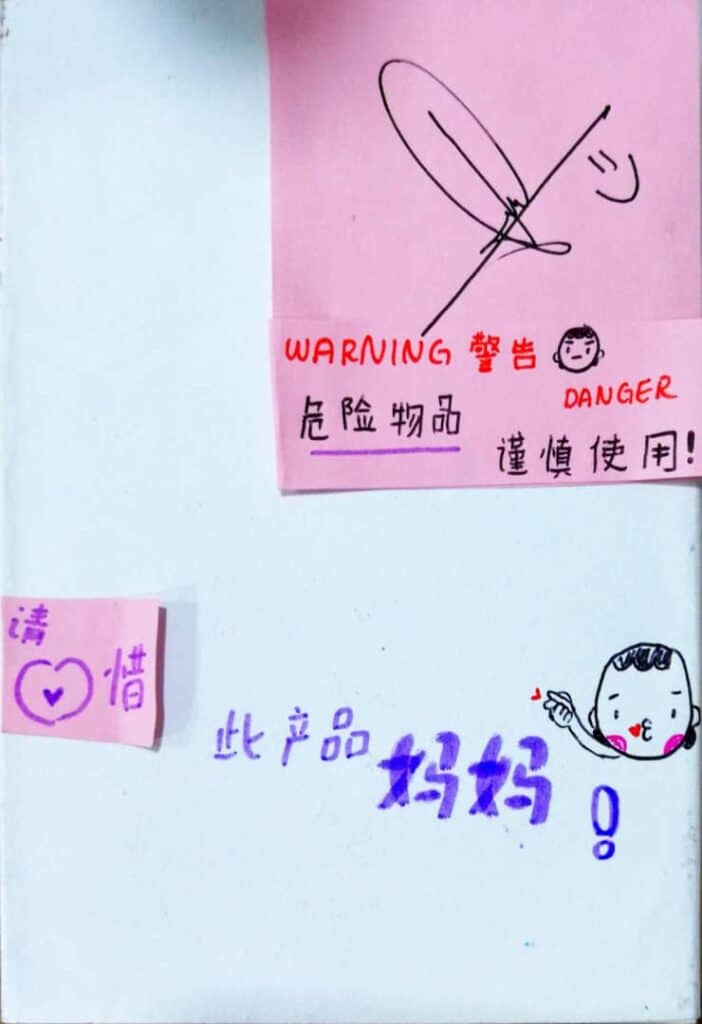 WARNING 警告
DANGER
危险物品
谨慎使用!
请
惜
此产品妈妈!